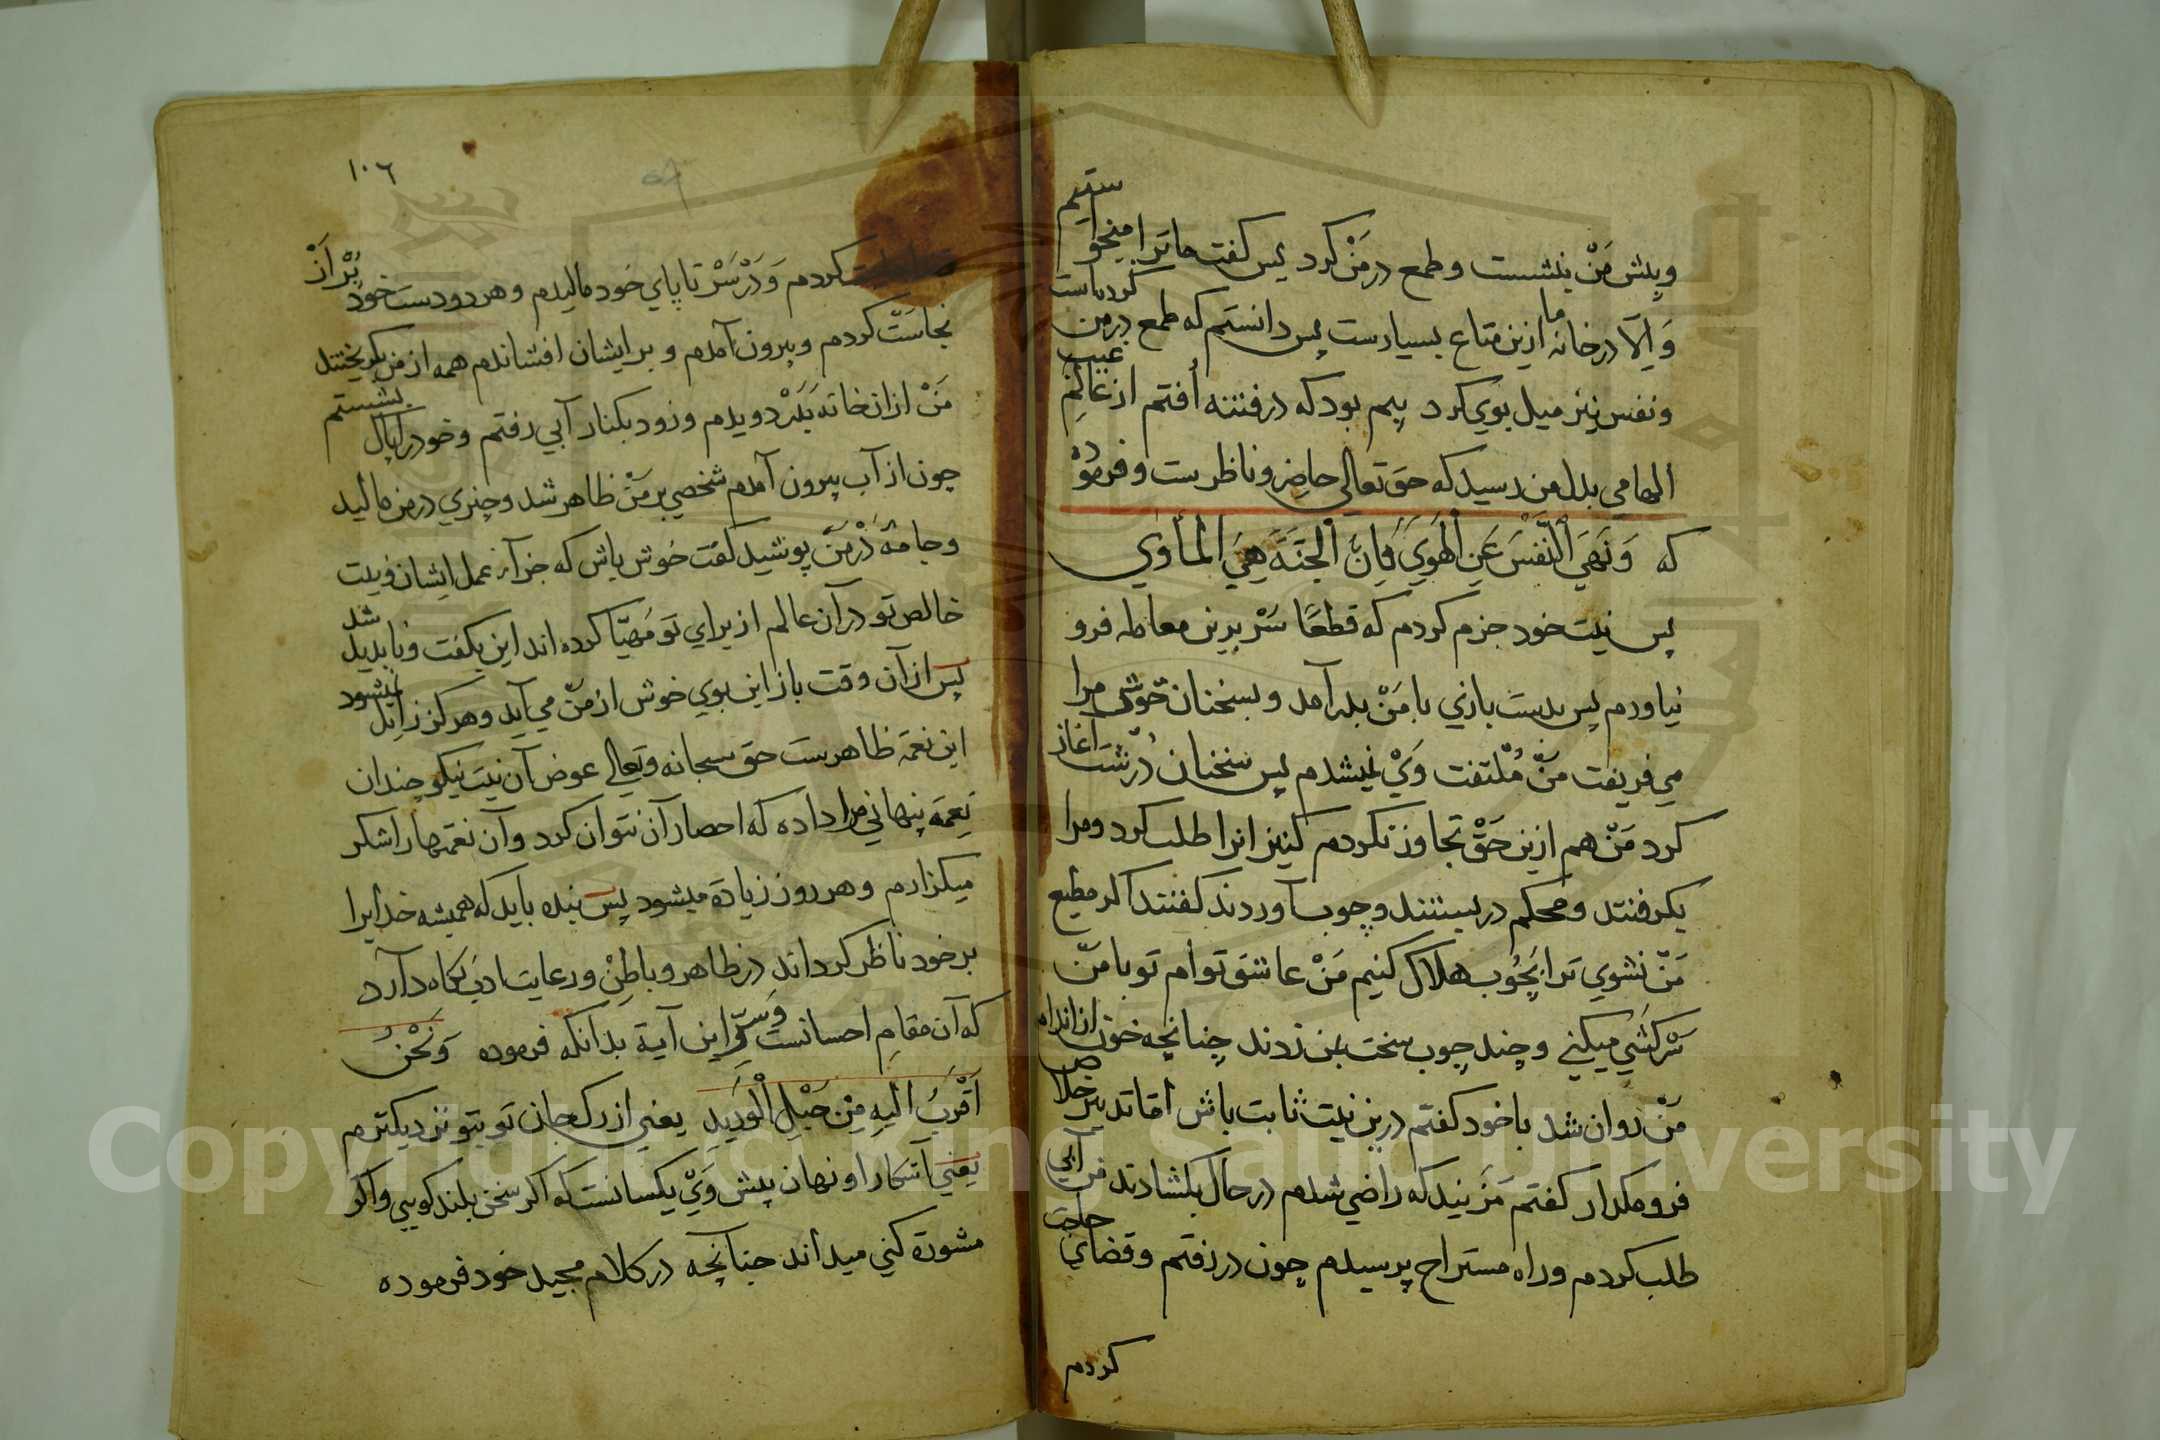 وپیش مَنْ بنشست وطمع درمَنْ کرد پس کفت ماترا میخواستیم
وَاِلّا درخانهٔ ما ازین متاع بسیارست پس دانستم که طمع درمن کرده است
ونفس نیز میل بوي کرد بیم بود که درفتنه اُفتم ازعالمِ غیب
الهامي بدل من رسید که حق تعالي حاضِر وناظرست وفرموُدْ
که وَنَهَيَ اَلنَّفْسَ عَنِ اَلْهَوَيٰ فَاِنَّ اَلْجَنَّةَ هِيَ اَلْمَأْوٰي
پس نیّت خود جزم کردم که قطعًا سَرْ بدین معامله فرو
نیاوردم پس بدست بازي بامَنْ بدرآمد وبسخنان خوش مرا
مي فریفت مَنْ مُلْتفت وَيْ نمیشدم پس سخنان دُرُشت آغاز
کرد مَنْ هم ازین حَقْ تجاوز نکردم کنیزانرا طلب کرد ومرا
بکرفتند ومحکم دربستند وچوب آوردند کفتند اکر مطیع
مَنْ نشوي ترا بچوُب هلاک کنیم مَنْ عاشق توام توبامَنْ
سَرْکَشي میکني وچند چوب سخت بمن زدند چنانچه خون ازاندام
مَنْ روان شد باخود کفتم درین نیّت ثابت باش اماتدبیر خلاص
فرومکذار کفتم مَزنید که راضي شدم درحال بکشادند من آبي
طلب کردم وراه مستراح پرسیدم چون دررفتم وقضاي حاجت
کردم
١٠٦
کردم وَدَرْ سَرْ تا پاي خود مالیدم وهردودست خود پُرْ اَزْ
نجاسَتْ کردم وبیرون آمدم وبرایشان افشاندم همه ازمن بکریختند
مَنْ ازان خانه بَدَرْ دویدم وزود بکنار آبي رفتم وخودرا پاک بشستم
چون ازآب بیرون آمدم شخصي برمَنْ ظاهرشد وچیزي درمن مالید
وجامهٔ دَرْمَنْ پوشید کفت خوش باش که جزاء عمل ایشان ونیّت
خالص تو درآن عالم ازبراي تو مُهیّا کرده اند این بکفت وناپدید شد
پس ازآن وقت باز این بوي خوش ازمن مي آید وهرکز زائل نمیشود
این نعمة ظاهرست حق سبحانه وتعالي عوض آن نیّت نیکو چندان
نِعمَة پنهاني مرا داده که احصار آن نتوان کرد وآن نعمتهارا شکر
میکزارم وهرروز زیاده میشود پس بنده باید که همیشه خدایرا
برخود ناظر کرداند درظاهر وباطِنْ ورعایت ادب نکاه دارد
که آن مقامِ احسانست وَسِرِّ این آیة بدانکه فرموده وَنَحْنُ
اَقْرَبُ اَلَيهِ مِنْ حَبْلِ الْوَرِيدِ یعني ازرک جان تو بتو نزدیکترم
یَعني آشکارا ونهان پیش وَيْ یکسانست کواکر سخن بلند کویي واکر
مشورة کني میداند چنانچه درکلام مجید خود فرموده
Copyright © King Saud University